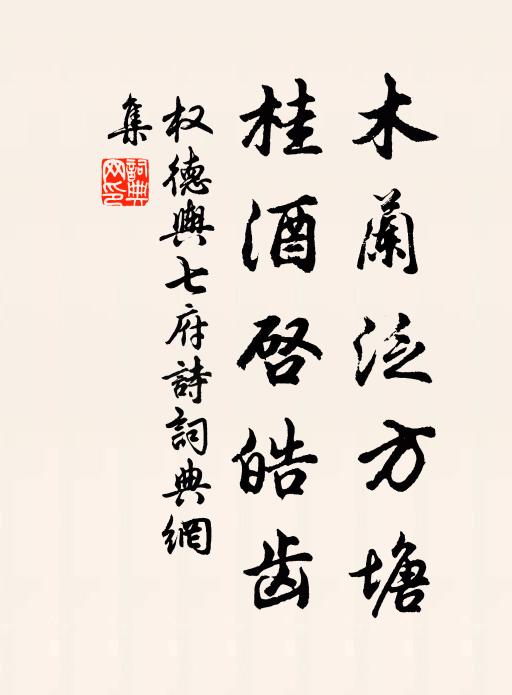 木蘭泛方塘
桂酒啓皓齿
权德輿七府詩詞典網
集
詞典网印